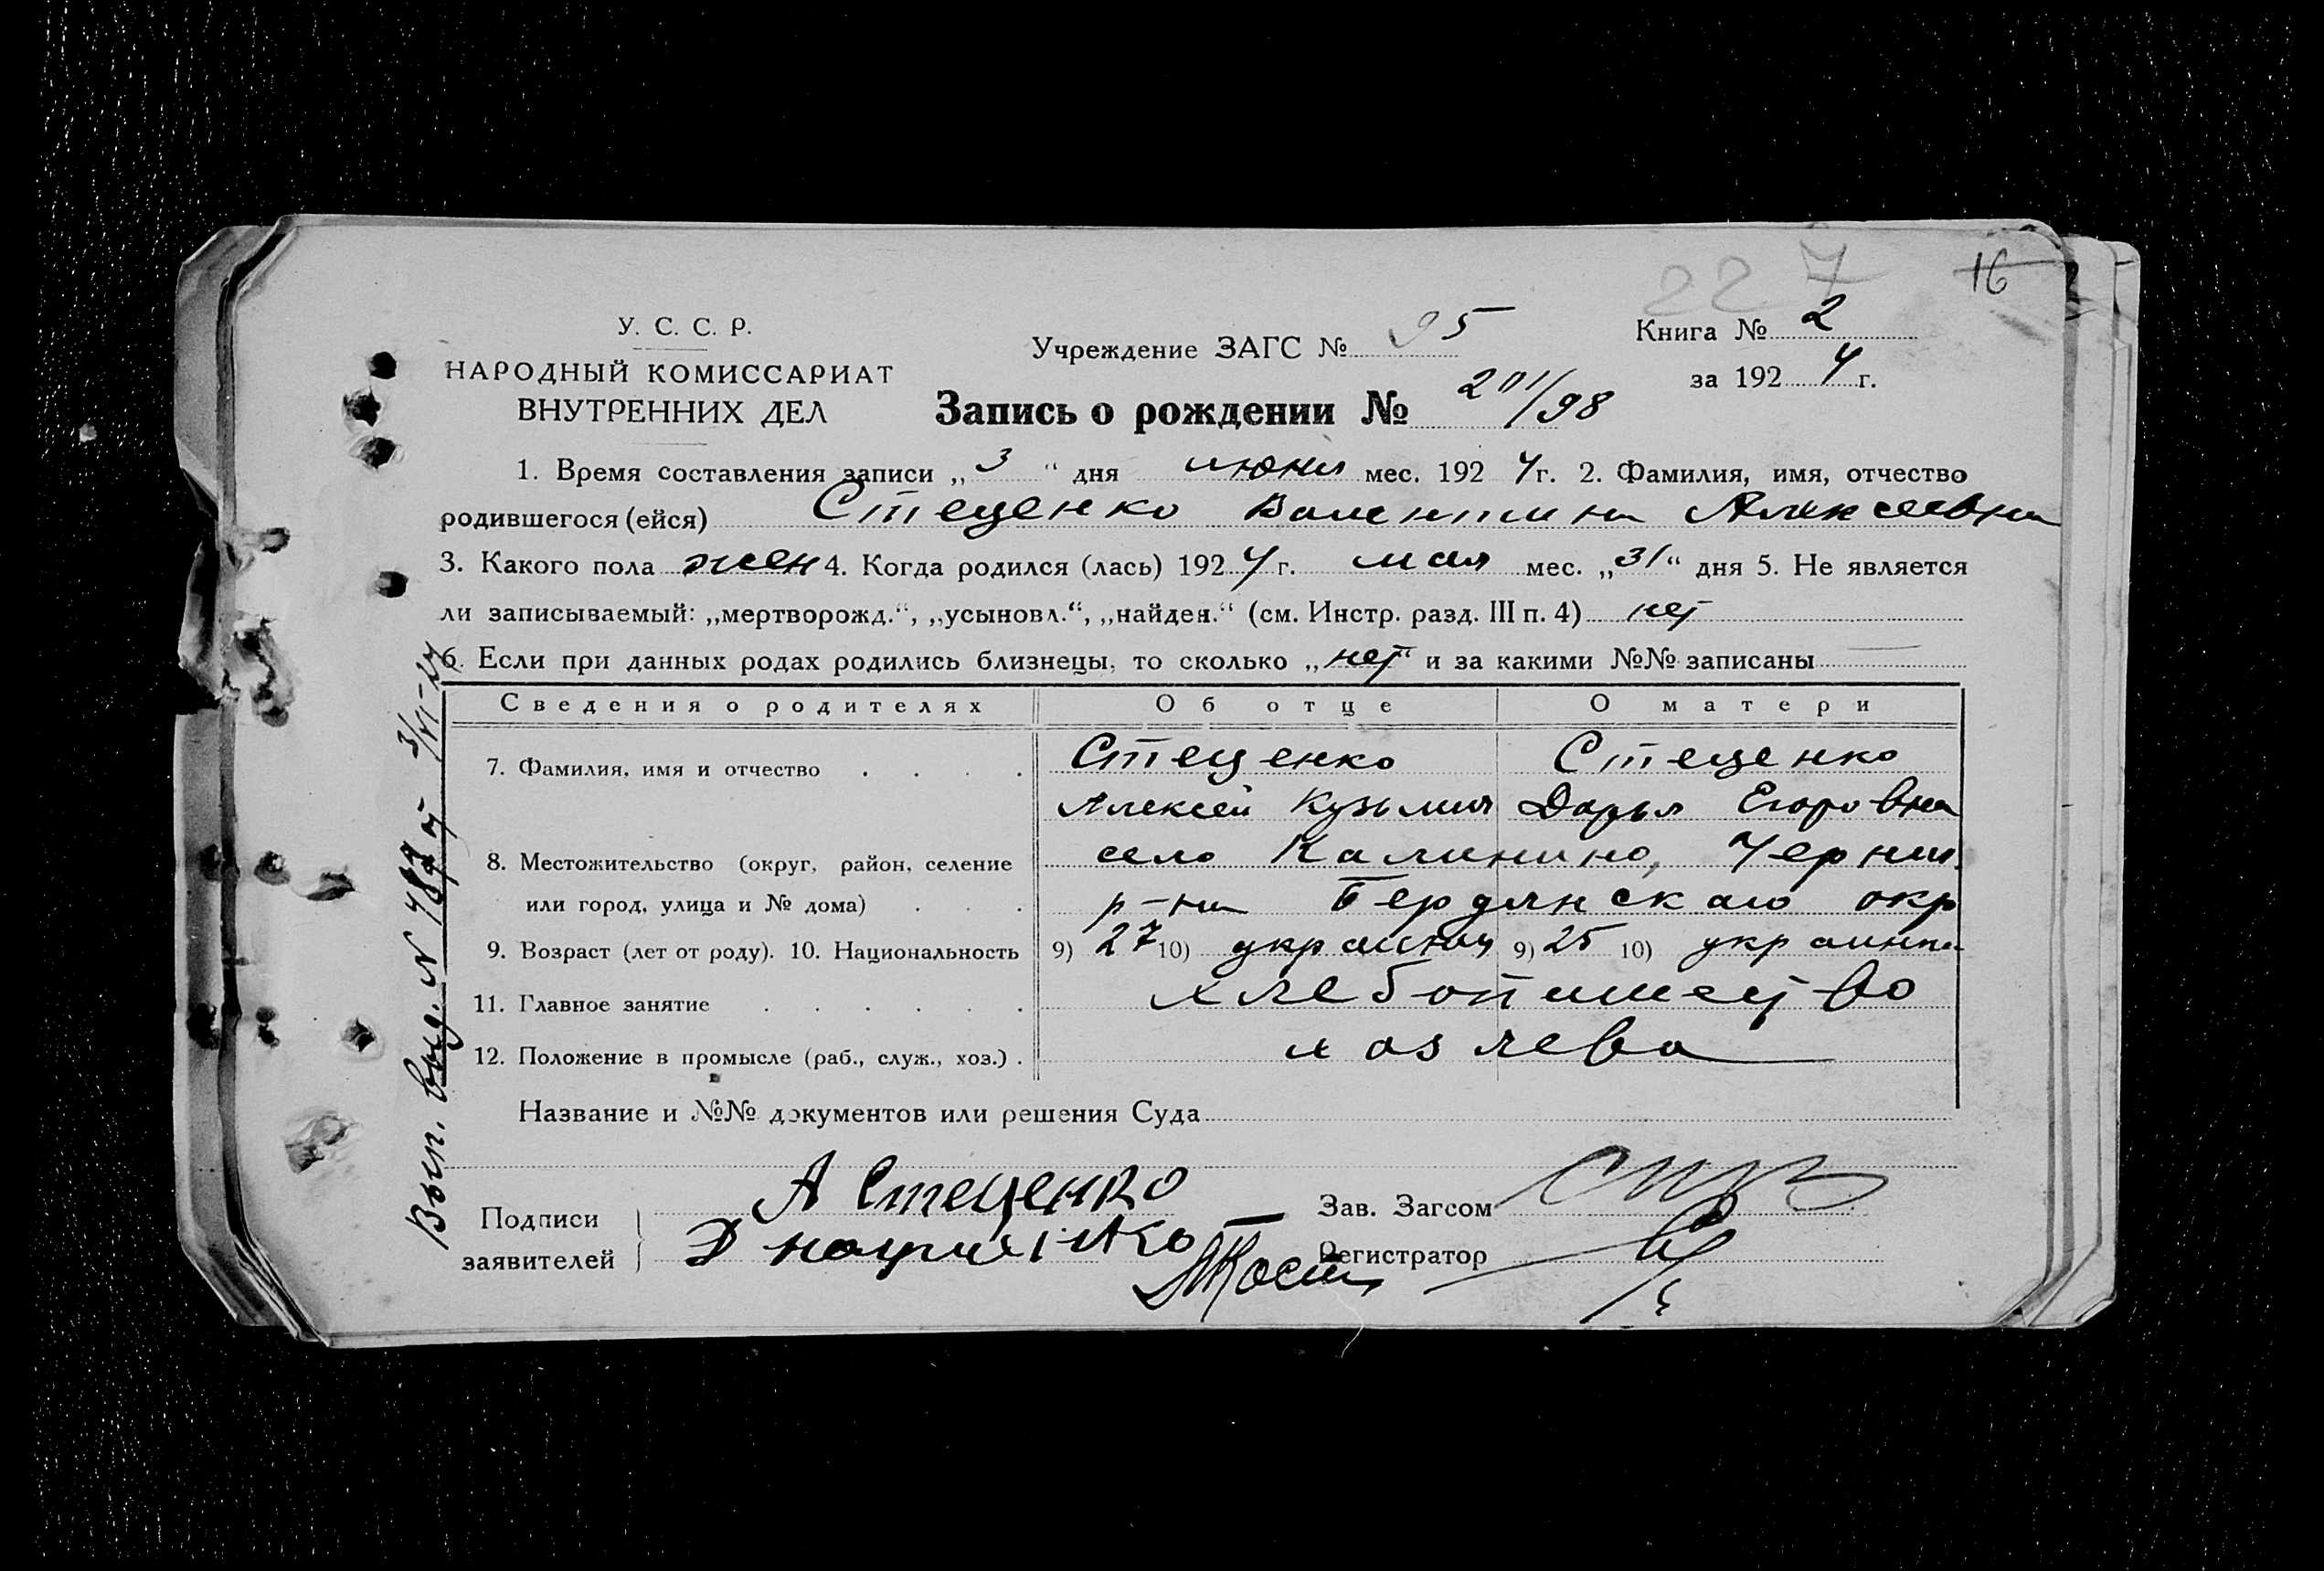 227
16
У. С. С. Р.
НАРОДНЫЙ КОМИССАРИАТ
ВНУТРЕННИХ ДЕЛ
Учреждение ЗАГС № 95
Книга № 2
за 1924 г.
Запись о рождении № 201/98
1. Время составления записи „3“ дня июня мес. 1924 г. 2. Фамилия, имя, отчество
родившегося (ейся) Стеценко Валентина Алексеевна
3. Какого пола жен 4. Когда родился (лась) 1924 г. мая мес. „31“ дня 5. Не является
ли записываемый: „мертворожд.“, „усыновл.“, „найден.“ (см. Инстр. разд. III п. 4) нет
6. Если при данных родах родились близнецы, то сколько „нет“ и за какими №№ записаны
Сведения о родителях Об отце О матери
7. Фамилия, имя и отчество Стеценко Стеценко
Алексей Кузьмич Дарья Егоровна
8. Местожительство (округ, район, селение село Калинино, Черниг.
или город, улица и № дома) р-на Бердянскаго окр
9. Возраст (лет от роду). 10. Национальность 9) 27 10) украинец 9) 25 10) украинка
11. Главное занятие хлебопашество
12. Положение в промысле (раб., служ., хоз.) хозяева
Название и №№ документов или решения Суда
Подписи А Стеценко Зав. Загсом
заявителей Регистратор
Вып. выд. N 3/VI-24